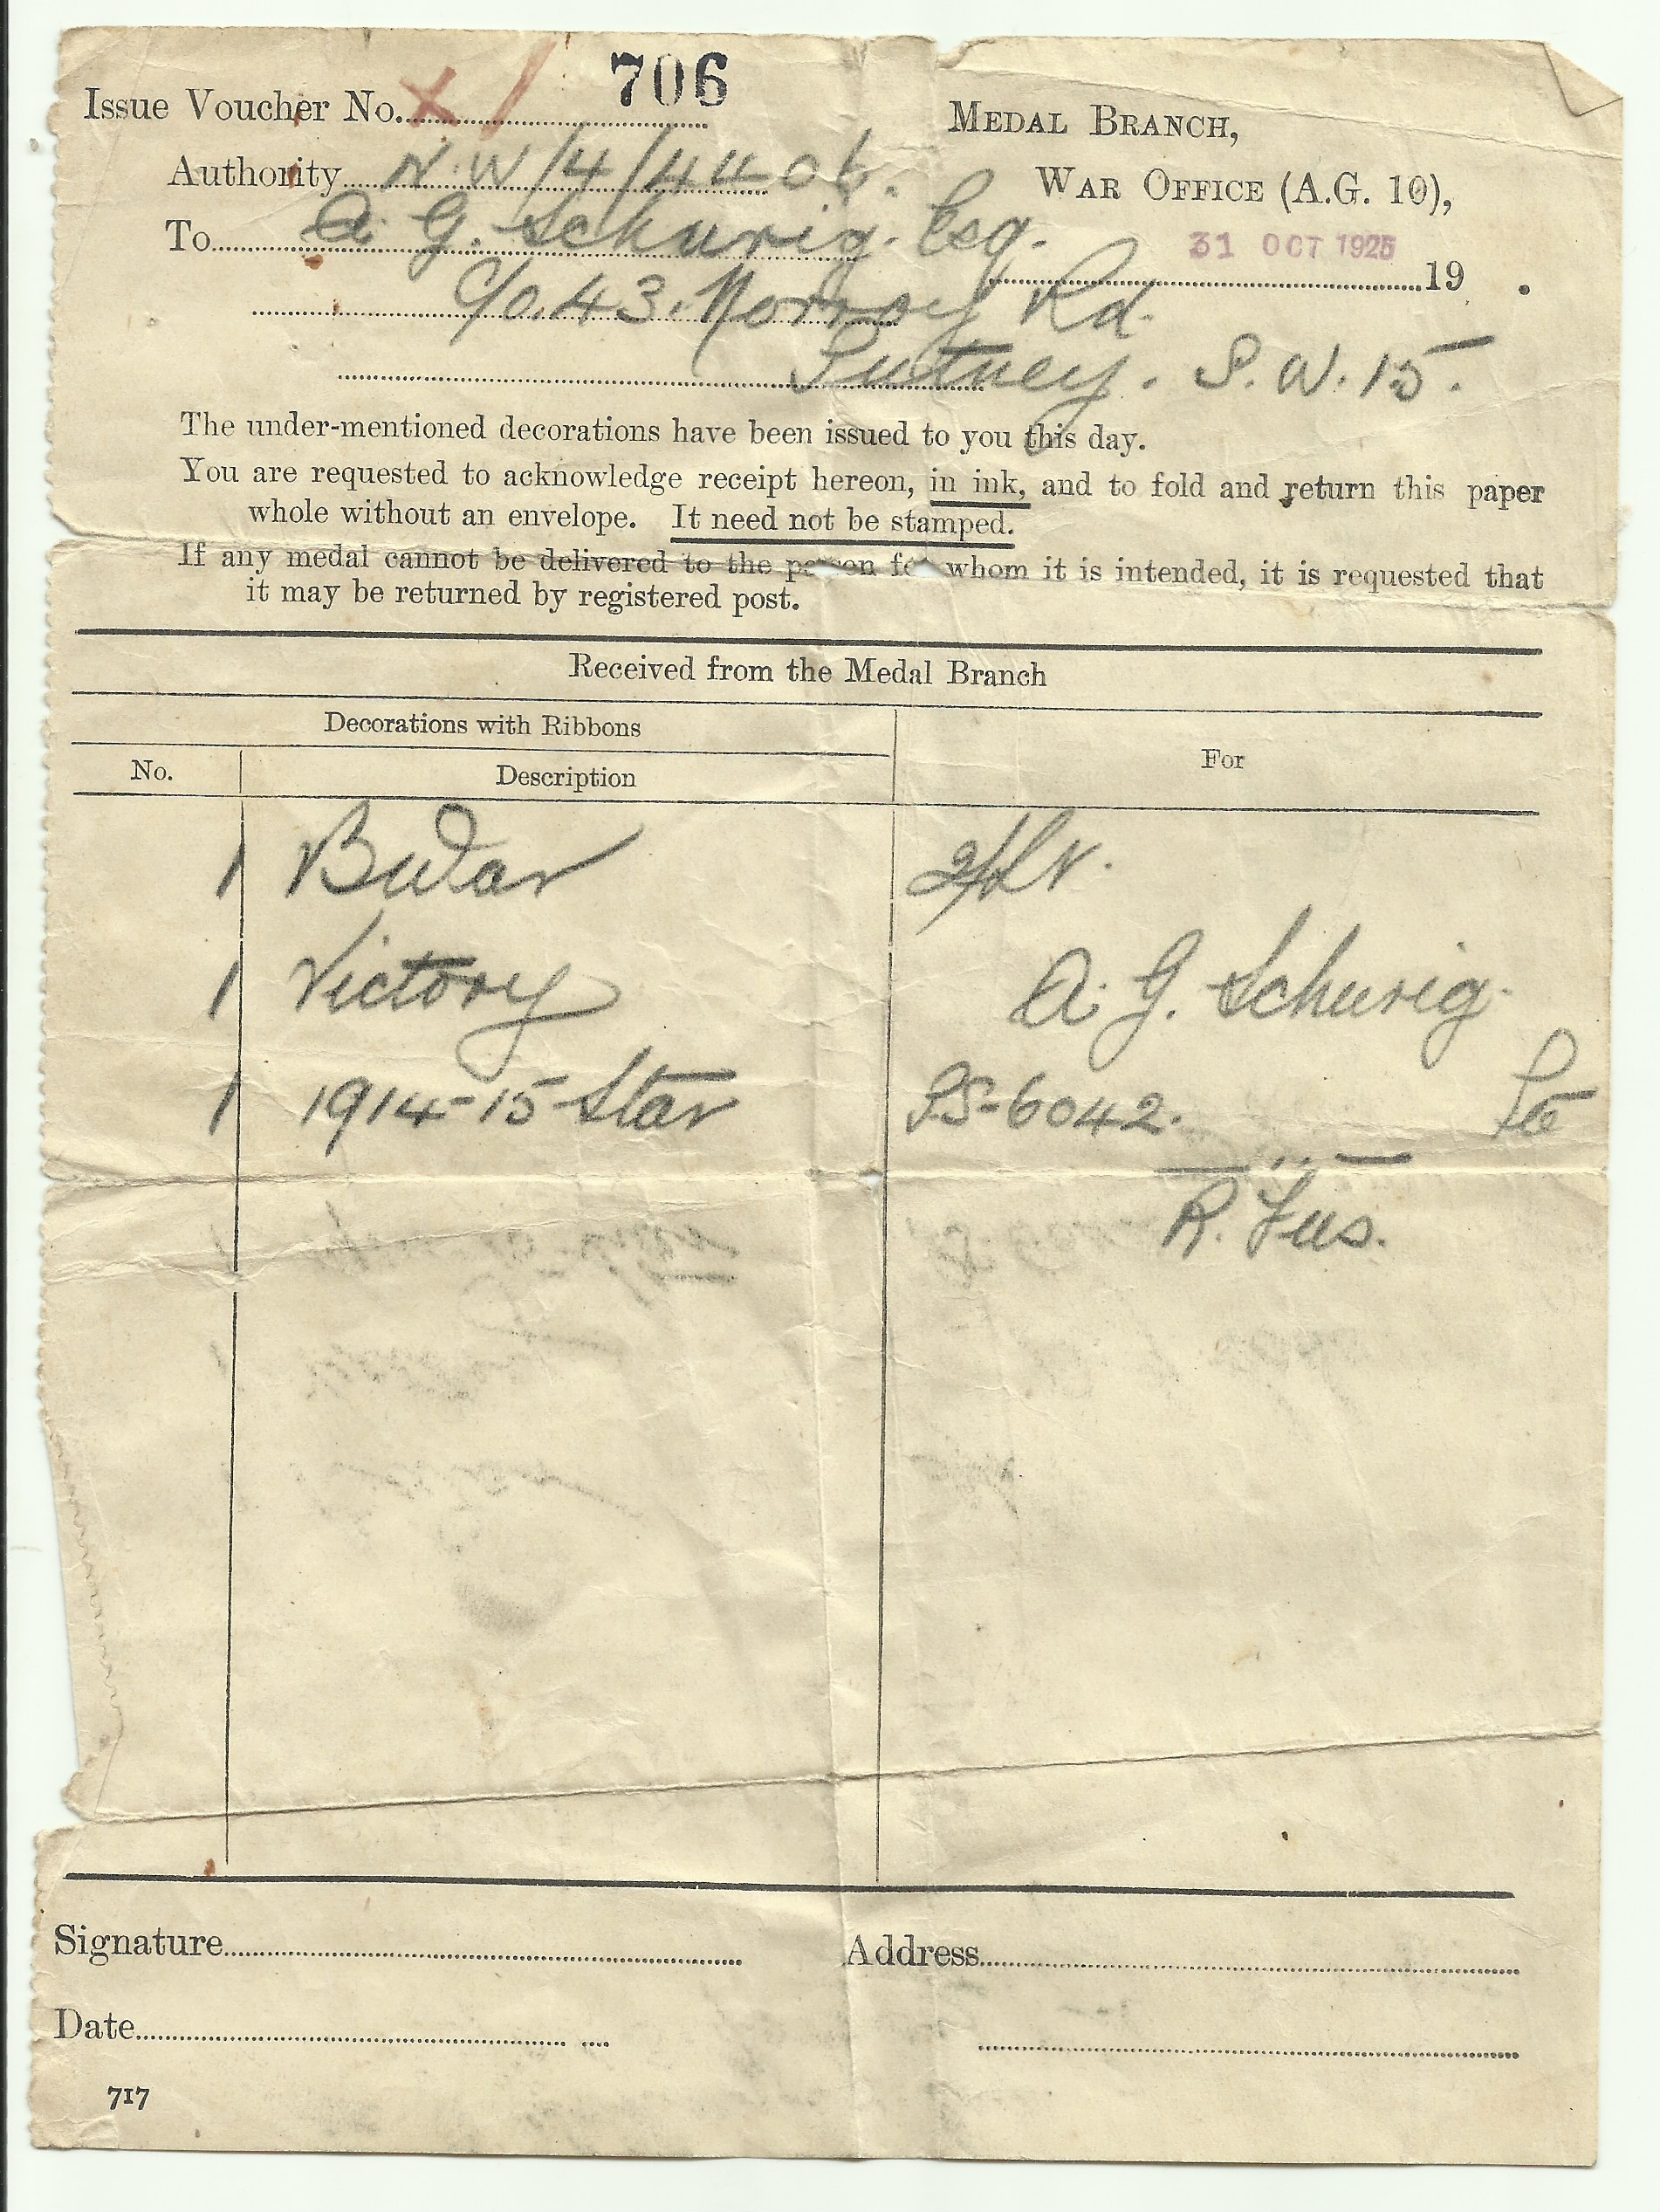 Issue Voucher No. X / 706
MEDAL BRANCH,
Authority N.W/4/44406.
WAR OFFICE (A.G. 10),
To A. G. Schurig. Esq.
31 OCT 1925
19 .
C/o. 43. Norroy Rd.
Putney. S.W.15.
The under-mentioned decorations have been issued to you this day.
You are requested to acknowledge receipt hereon, in ink, and to fold and return this paper
whole without an envelope. It need not be stamped.
If any medal cannot be delivered to the person for whom it is intended, it is requested that
it may be returned by registered post.
Received from the Medal Branch
Decorations with Ribbons
For
No. Description
1 BWar 2/Lt.
1 Victory A. G. Schurig.
1 1914-15 Star PS-6042. Pte
R. Fus.
Signature
Address
Date
717